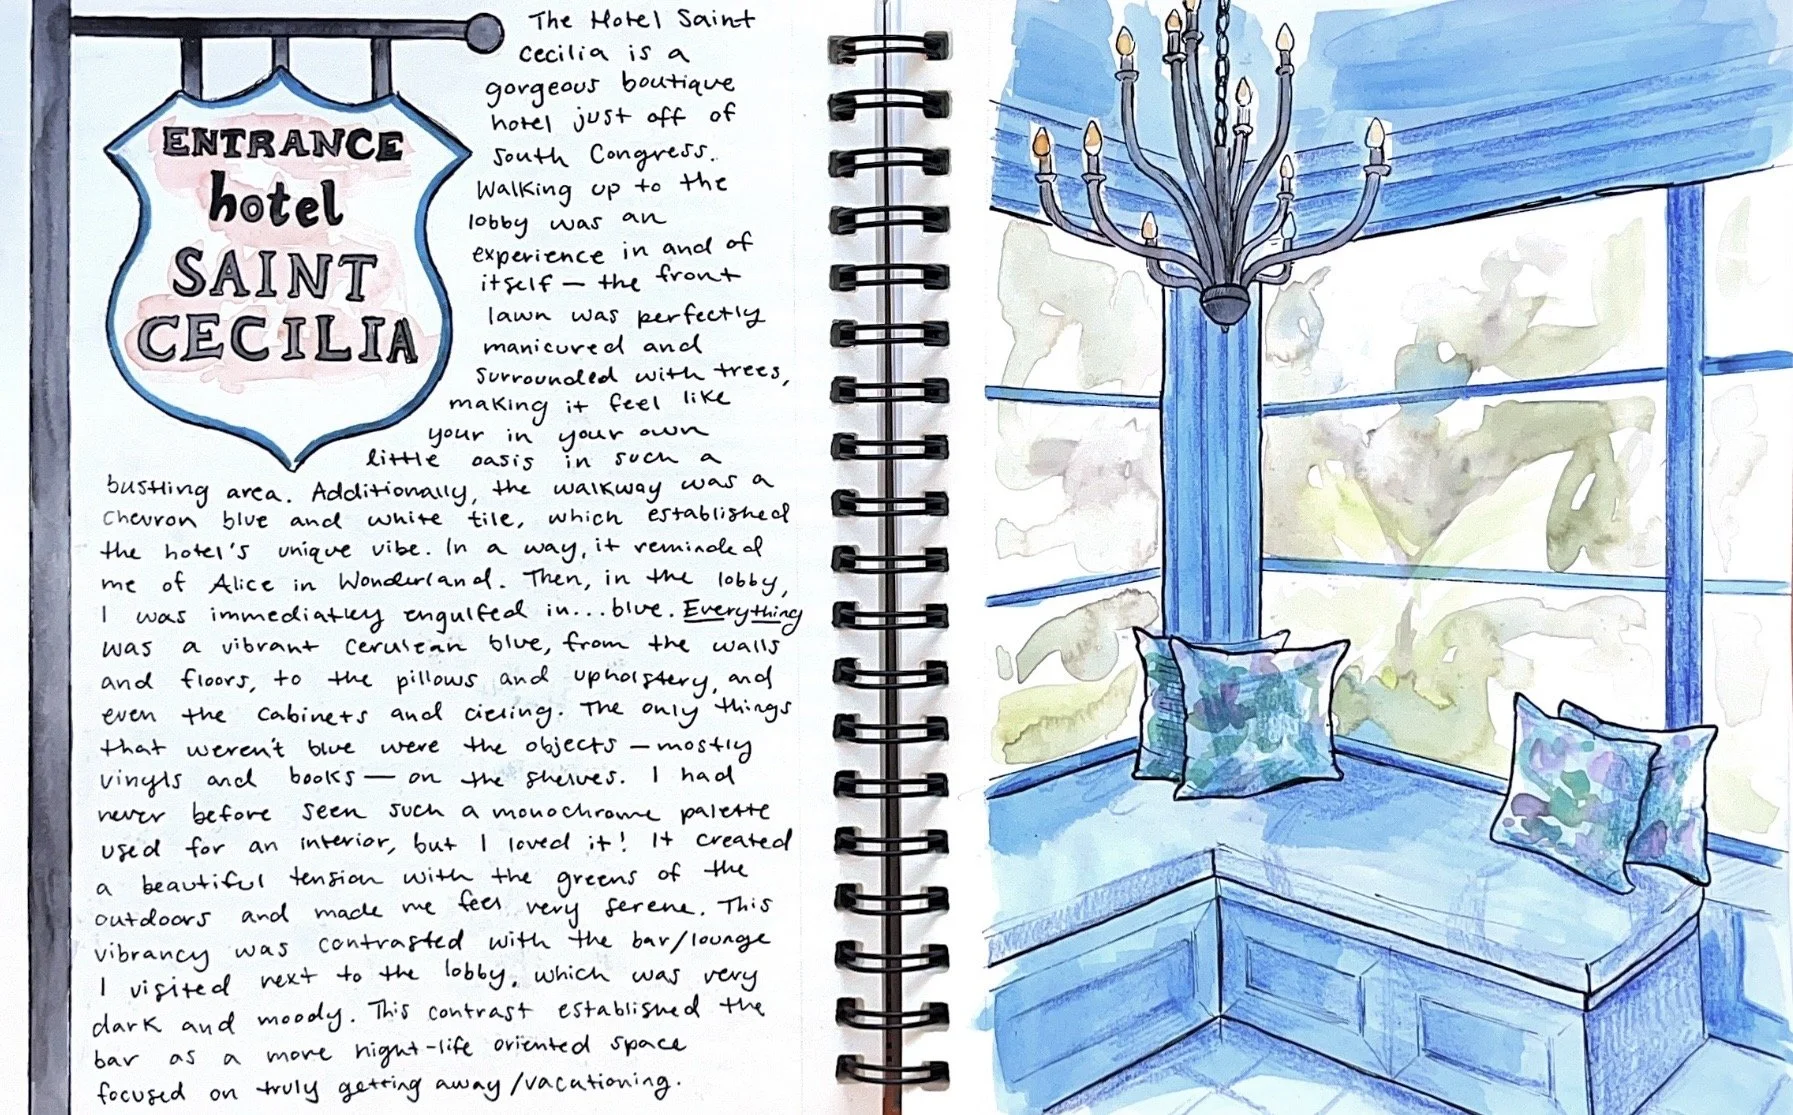 ENTRANCE
hotel
SAINT
CECILIA
The Hotel Saint
Cecilia is a
gorgeous boutique
hotel just off of
South Congress.
Walking up to the
lobby was an
experience in and of
itself — the front
lawn was perfectly
manicured and
surrounded with trees,
making it feel like
your in your own
little oasis in such a
bustling area. Additionally, the walkway was a
chevron blue and white tile, which established
the hotel's unique vibe. In a way, it reminded
me of Alice in Wonderland. Then, in the lobby,
I was immediatley engulfed in... blue. Everything
was a vibrant cerulean blue, from the walls
and floors, to the pillows and upholstery, and
even the cabinets and cieling. The only things
that weren't blue were the objects — mostly
vinyls and books — on the shelves. I had
never before seen such a monochrome palette
used for an interior, but I loved it! It created
a beautiful tension with the greens of the
outdoors and made me feel very serene. This
vibrancy was contrasted with the bar/lounge
I visited next to the lobby, which was very
dark and moody. This contrast established the
bar as a more night-life oriented space
focused on truly getting away/vacationing.